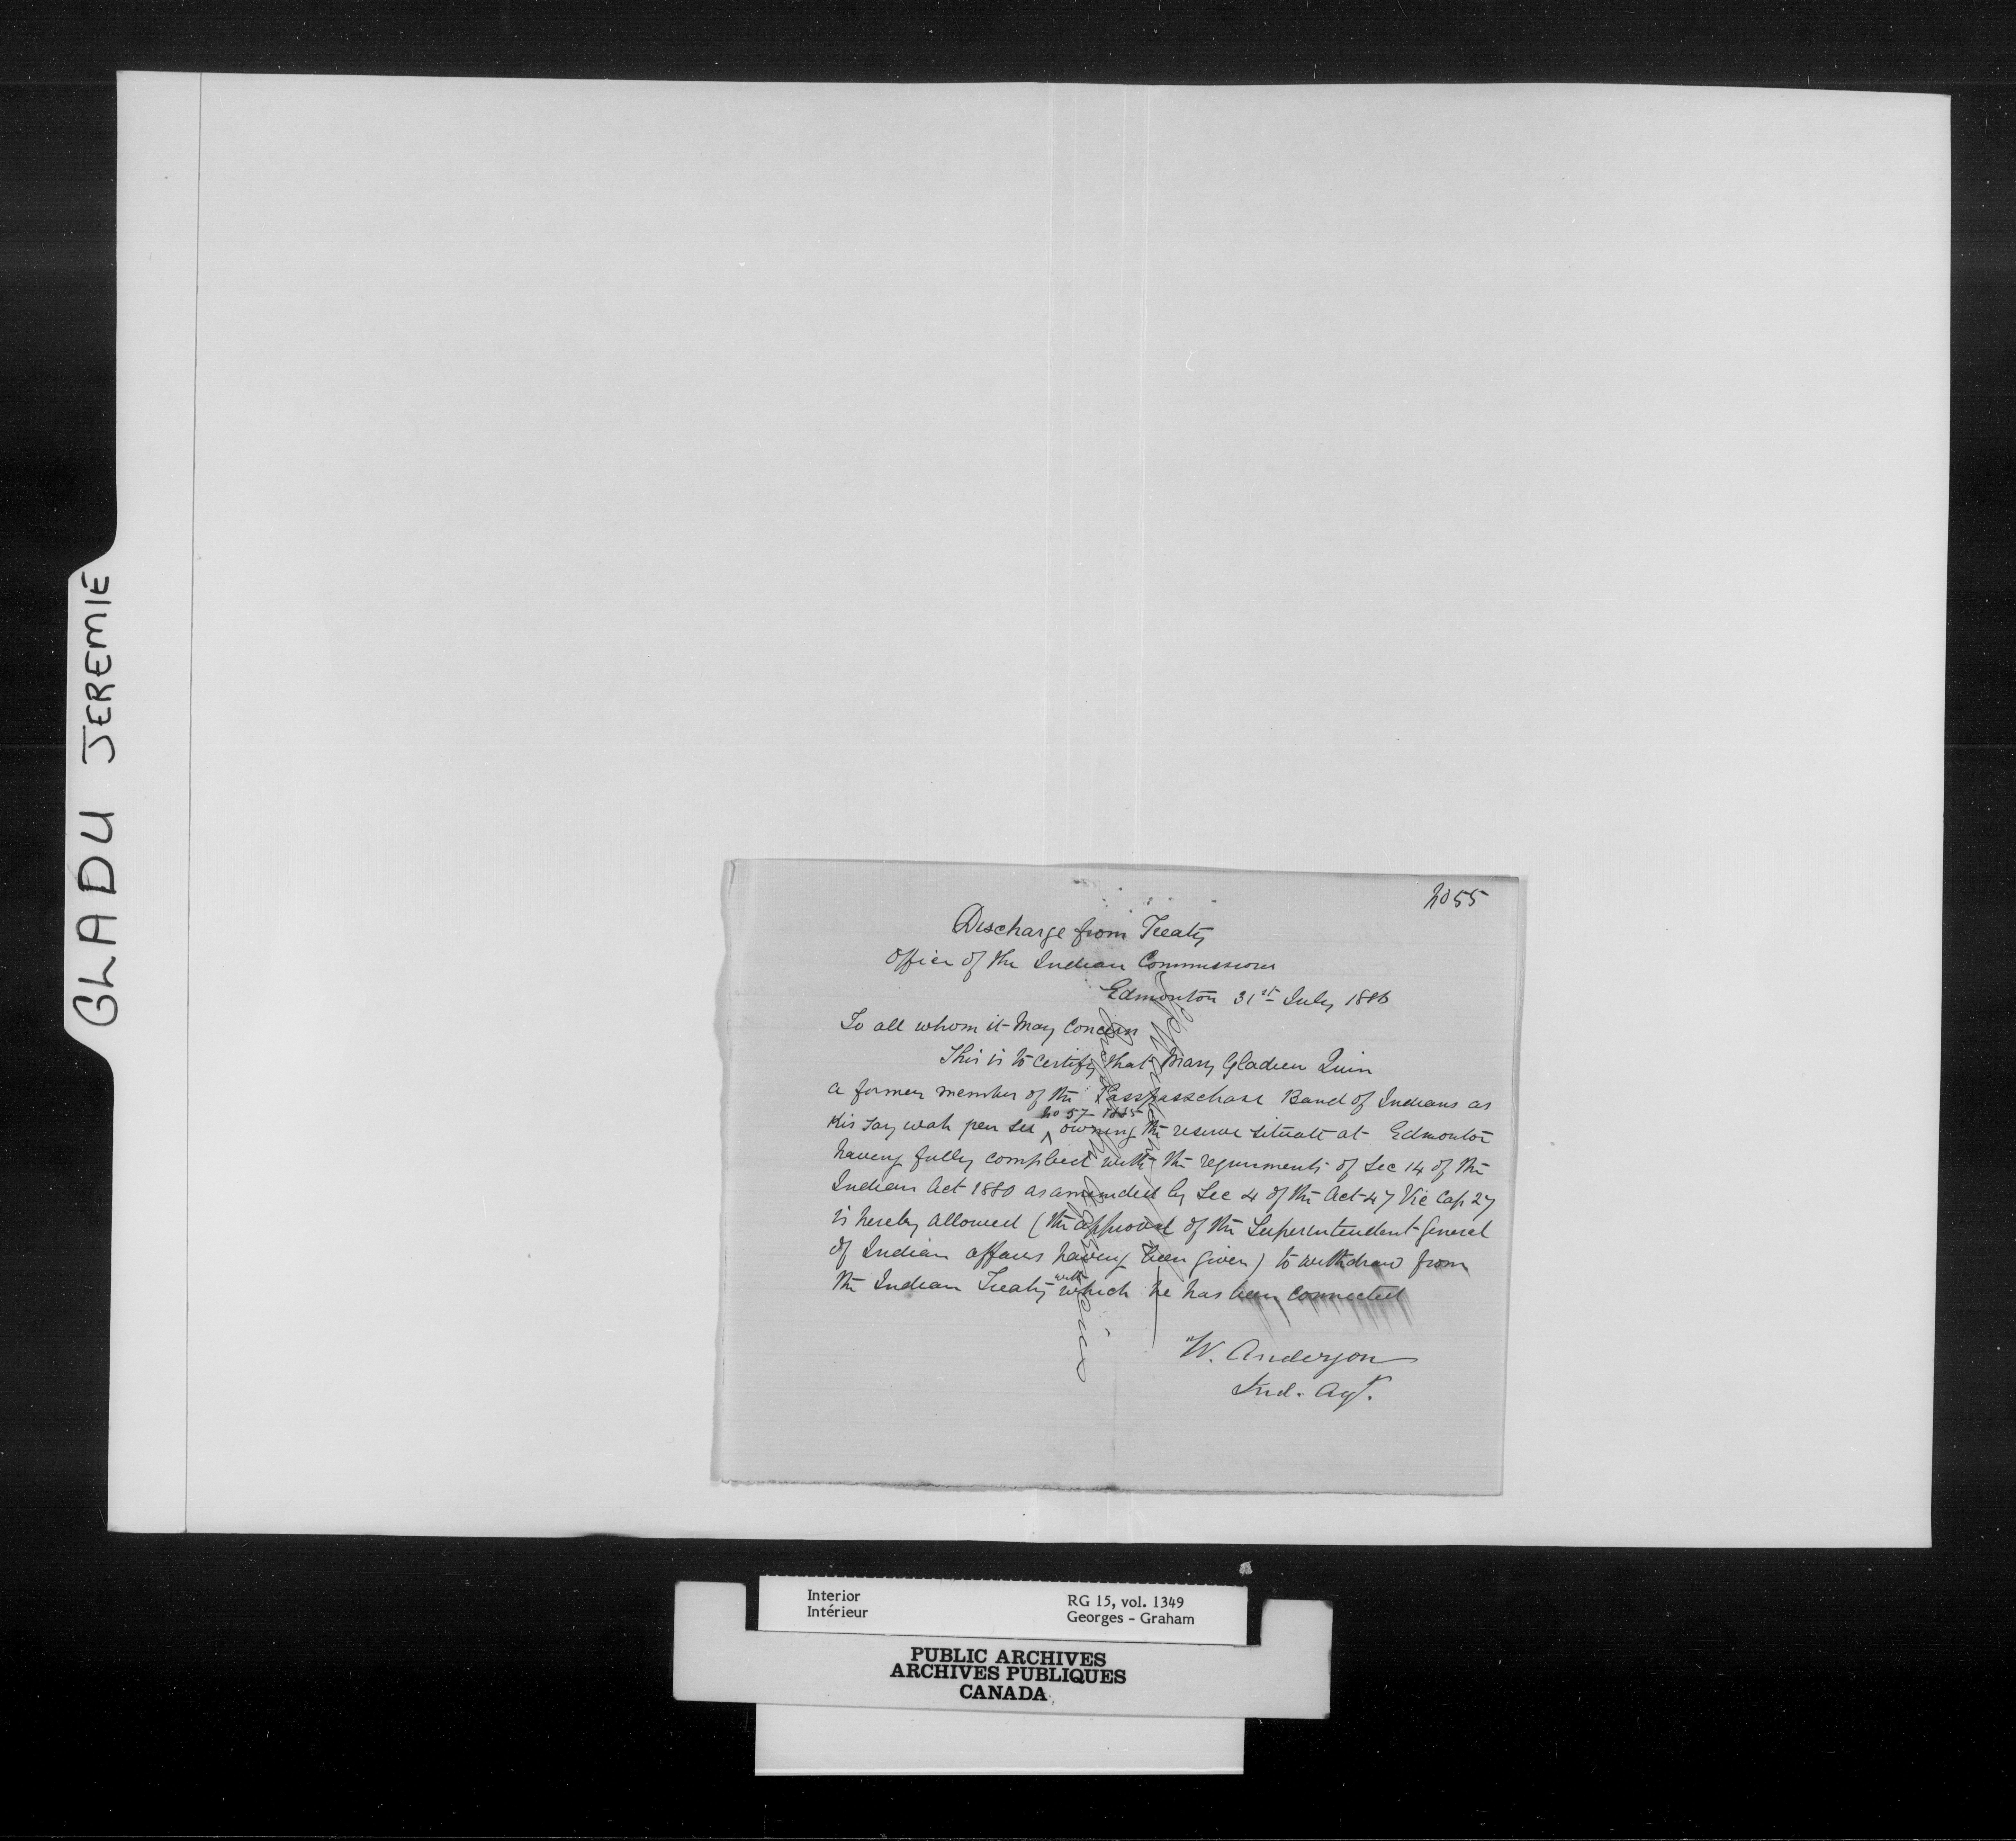 GLADU JEREMIE
2055
Discharge from Treaty
Office of the Indian Commissioner
Edmonton 31st July 1886
To all whom it May Concern
This is to certify that Mary Gladieu Quin
a former member of the Passpasschase Band of Indians as
Kis say wah pen ses No 57 1885 owning the reserve situate at Edmonton
having fully complied with the requirments of Sec 14 of the
Indian Act 1880 as amended by Sec 4 of the Act 47 Vic Cap 27
is hereby allowed (the approval of the Superintendent General
of Indian affairs having been given) to withdraw from
the Indian Treaty with which he has been connected
W. Anderson
Ind. Agt.
Interior
Intérieur
RG 15, vol. 1349
Georges - Graham
PUBLIC ARCHIVES
ARCHIVES PUBLIQUES
CANADA